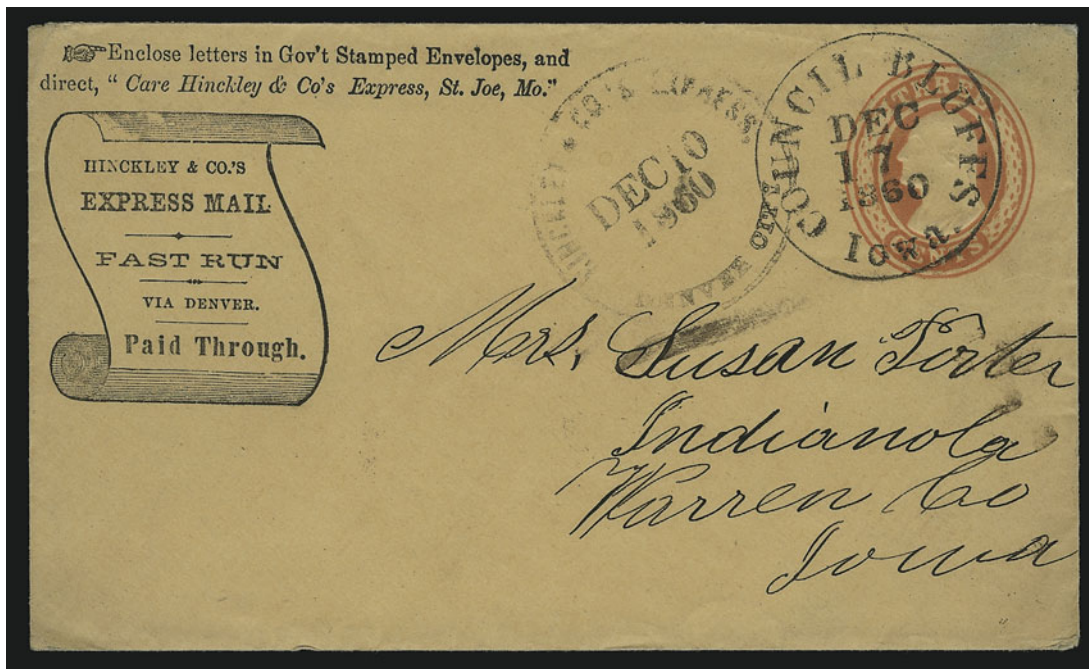 Enclose letters in Gov't Stamped Envelopes, and
direct, " Care Hinckley & Co's Express, St. Joe, Mo."
HINCKLEY & CO.'S
EXPRESS MAIL
FAST RUN
VIA DENVER.
Paid Through.
HINCKLEY & CO.'S EXPRESS,
DEC 10
1860
DENVER CITY
COUNCIL BLUFFS
DEC
17
1860
Iowa.
THREE
CENTS
Mrs. Susan
Indianola
Warren Co
Iowa